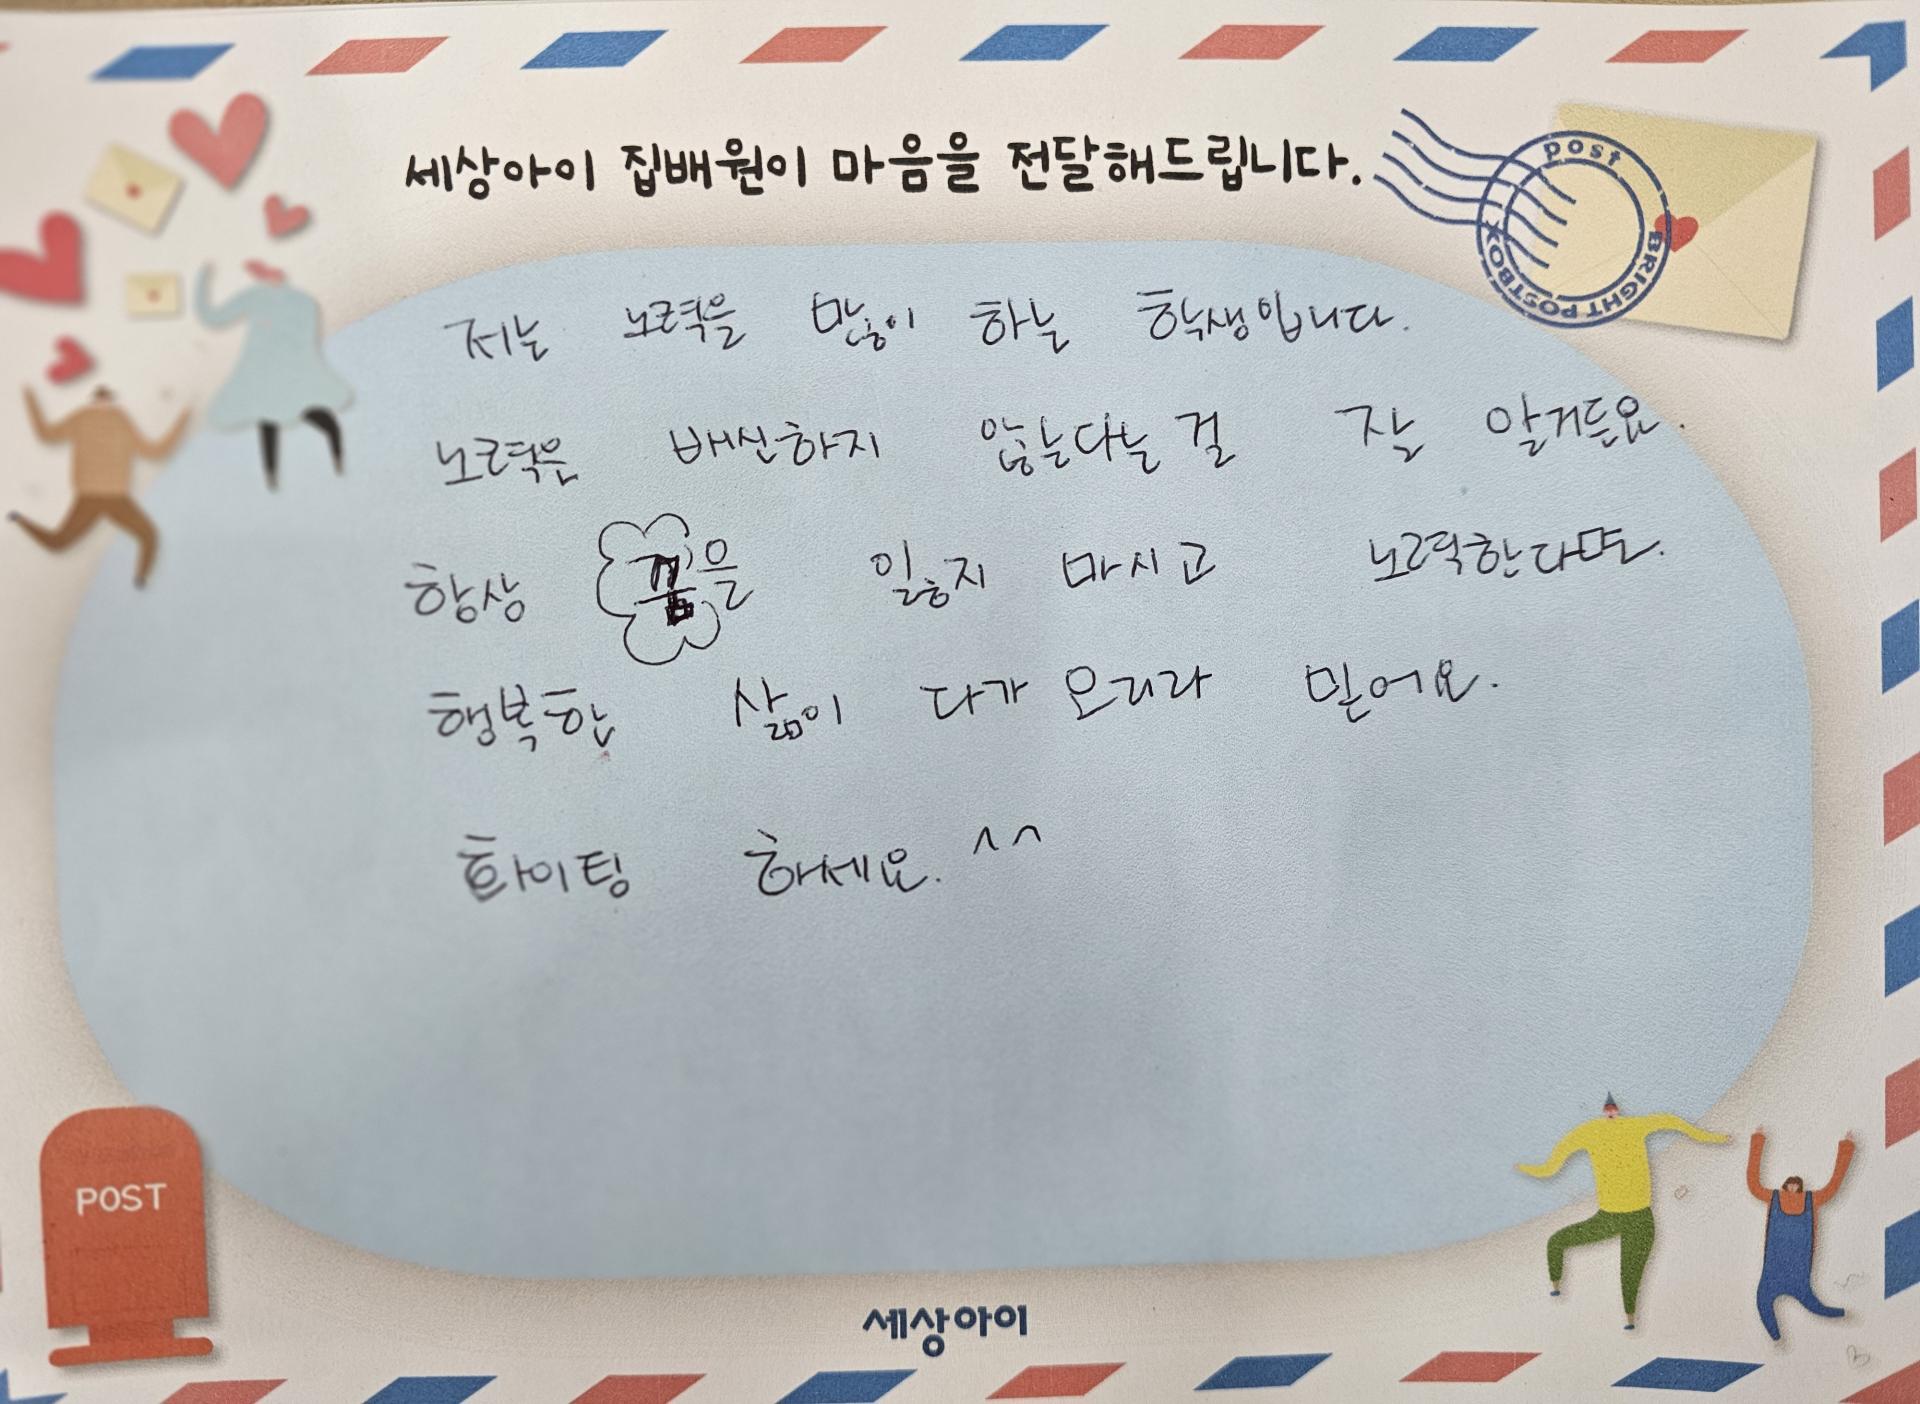 세상아이 집배원이 마음을 전달해드립니다.
post
BRIGHT POSTBOX
저는 노력을 많이 하는 학생입니다.
노력은 배신하지 않는다는 걸 잘 알거든요.
항상 꿈을 잃지 마시고 노력한다면.
행복한 삶이 다가 오리라 믿어요.
화이팅 하세요. ^^
POST
세상아이